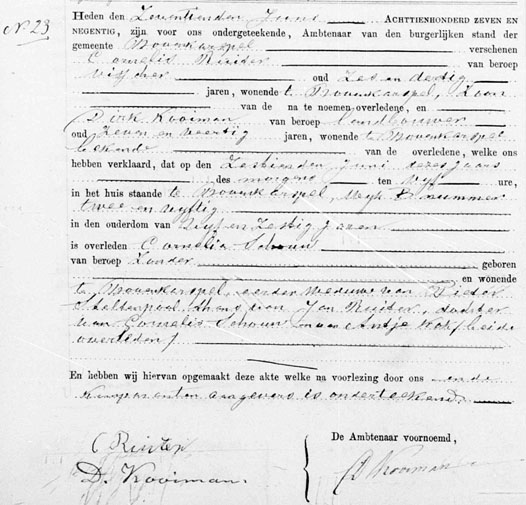 No 23.
Heden den Zeventienden Juni ACHTTIENHONDERD ZEVEN EN
NEGENTIG, zijn voor ons ondergeteekende, Ambtenaar van den burgerlijken stand der
gemeente Bovenkarspel verschenen
Cornelis Ruiter van beroep
visscher oud Zes en dertig
jaren, wonende te Bovenkarspel, Zoon
van de na te noemen overledene, en
Dirk Kooiman van beroep Landbouwer
oud Zeven en veertig jaren, wonende te Bovenkarspel
bekende van de overledene, welke ons
hebben verklaard, dat op den Zestienden Juni dezes jaars
des morgens ten vijf ure,
in het huis staande te Bovenkarspel, Wijk B nummer
twee en vijftig
in den ouderdom van Vijf en Zestig jaren
is overleden Cornelia Schouw
van beroep Zonder geboren
en wonende
te Bovenkarspel, eerder weduwe van Pieter
Steltenpool, thans van Jan Ruiter, dochter
van Cornelis Schouw en van Antje Kok, beide
overleden
En hebben wij hiervan opgemaakt deze akte welke na voorlezing door ons en de
Comparanten aangevers is onderteekend.
De Ambtenaar voornoemd,
C Ruiter
D. Kooiman.
D Kooiman